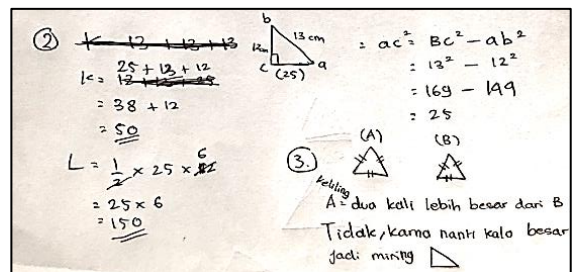 ②
K = 13 + 13 + 13
K = 25 + 13 + 12
= 38 + 12
= 50
L = 1/2 × 25 × 6
= 25 × 6
= 150
b
13 cm
12cm
c (25) a
= ac² = Bc² - ab²
= 13² - 12²
= 169 - 144
= 25
③.
(A) (B)
Keliling
A = dua kali lebih besar dari B
Tidak, karna nanti kalo besar
jadi miring